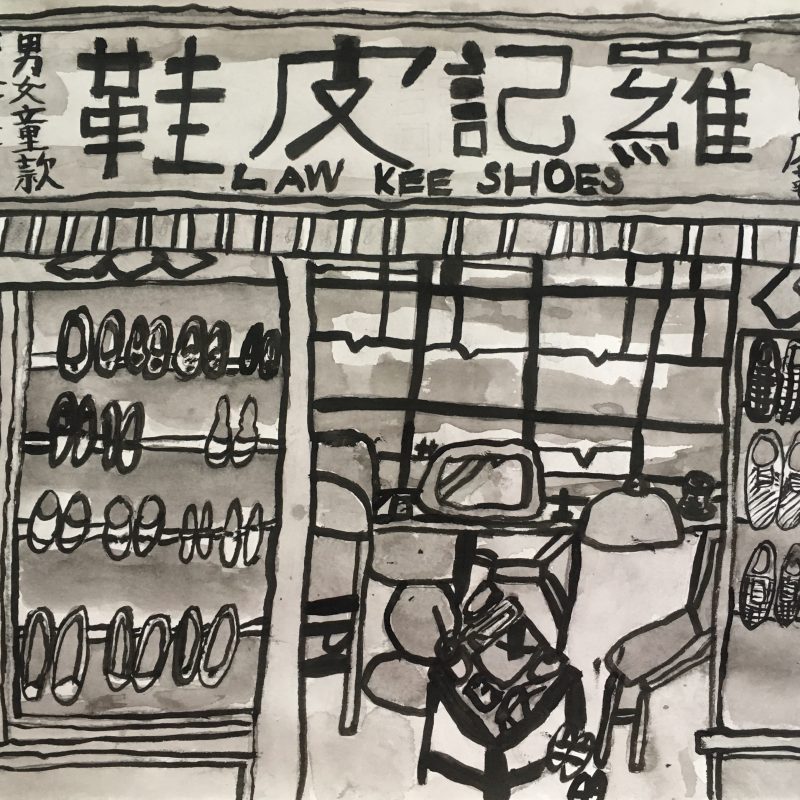 羅記皮鞋
LAW KEE SHOES
男女童款